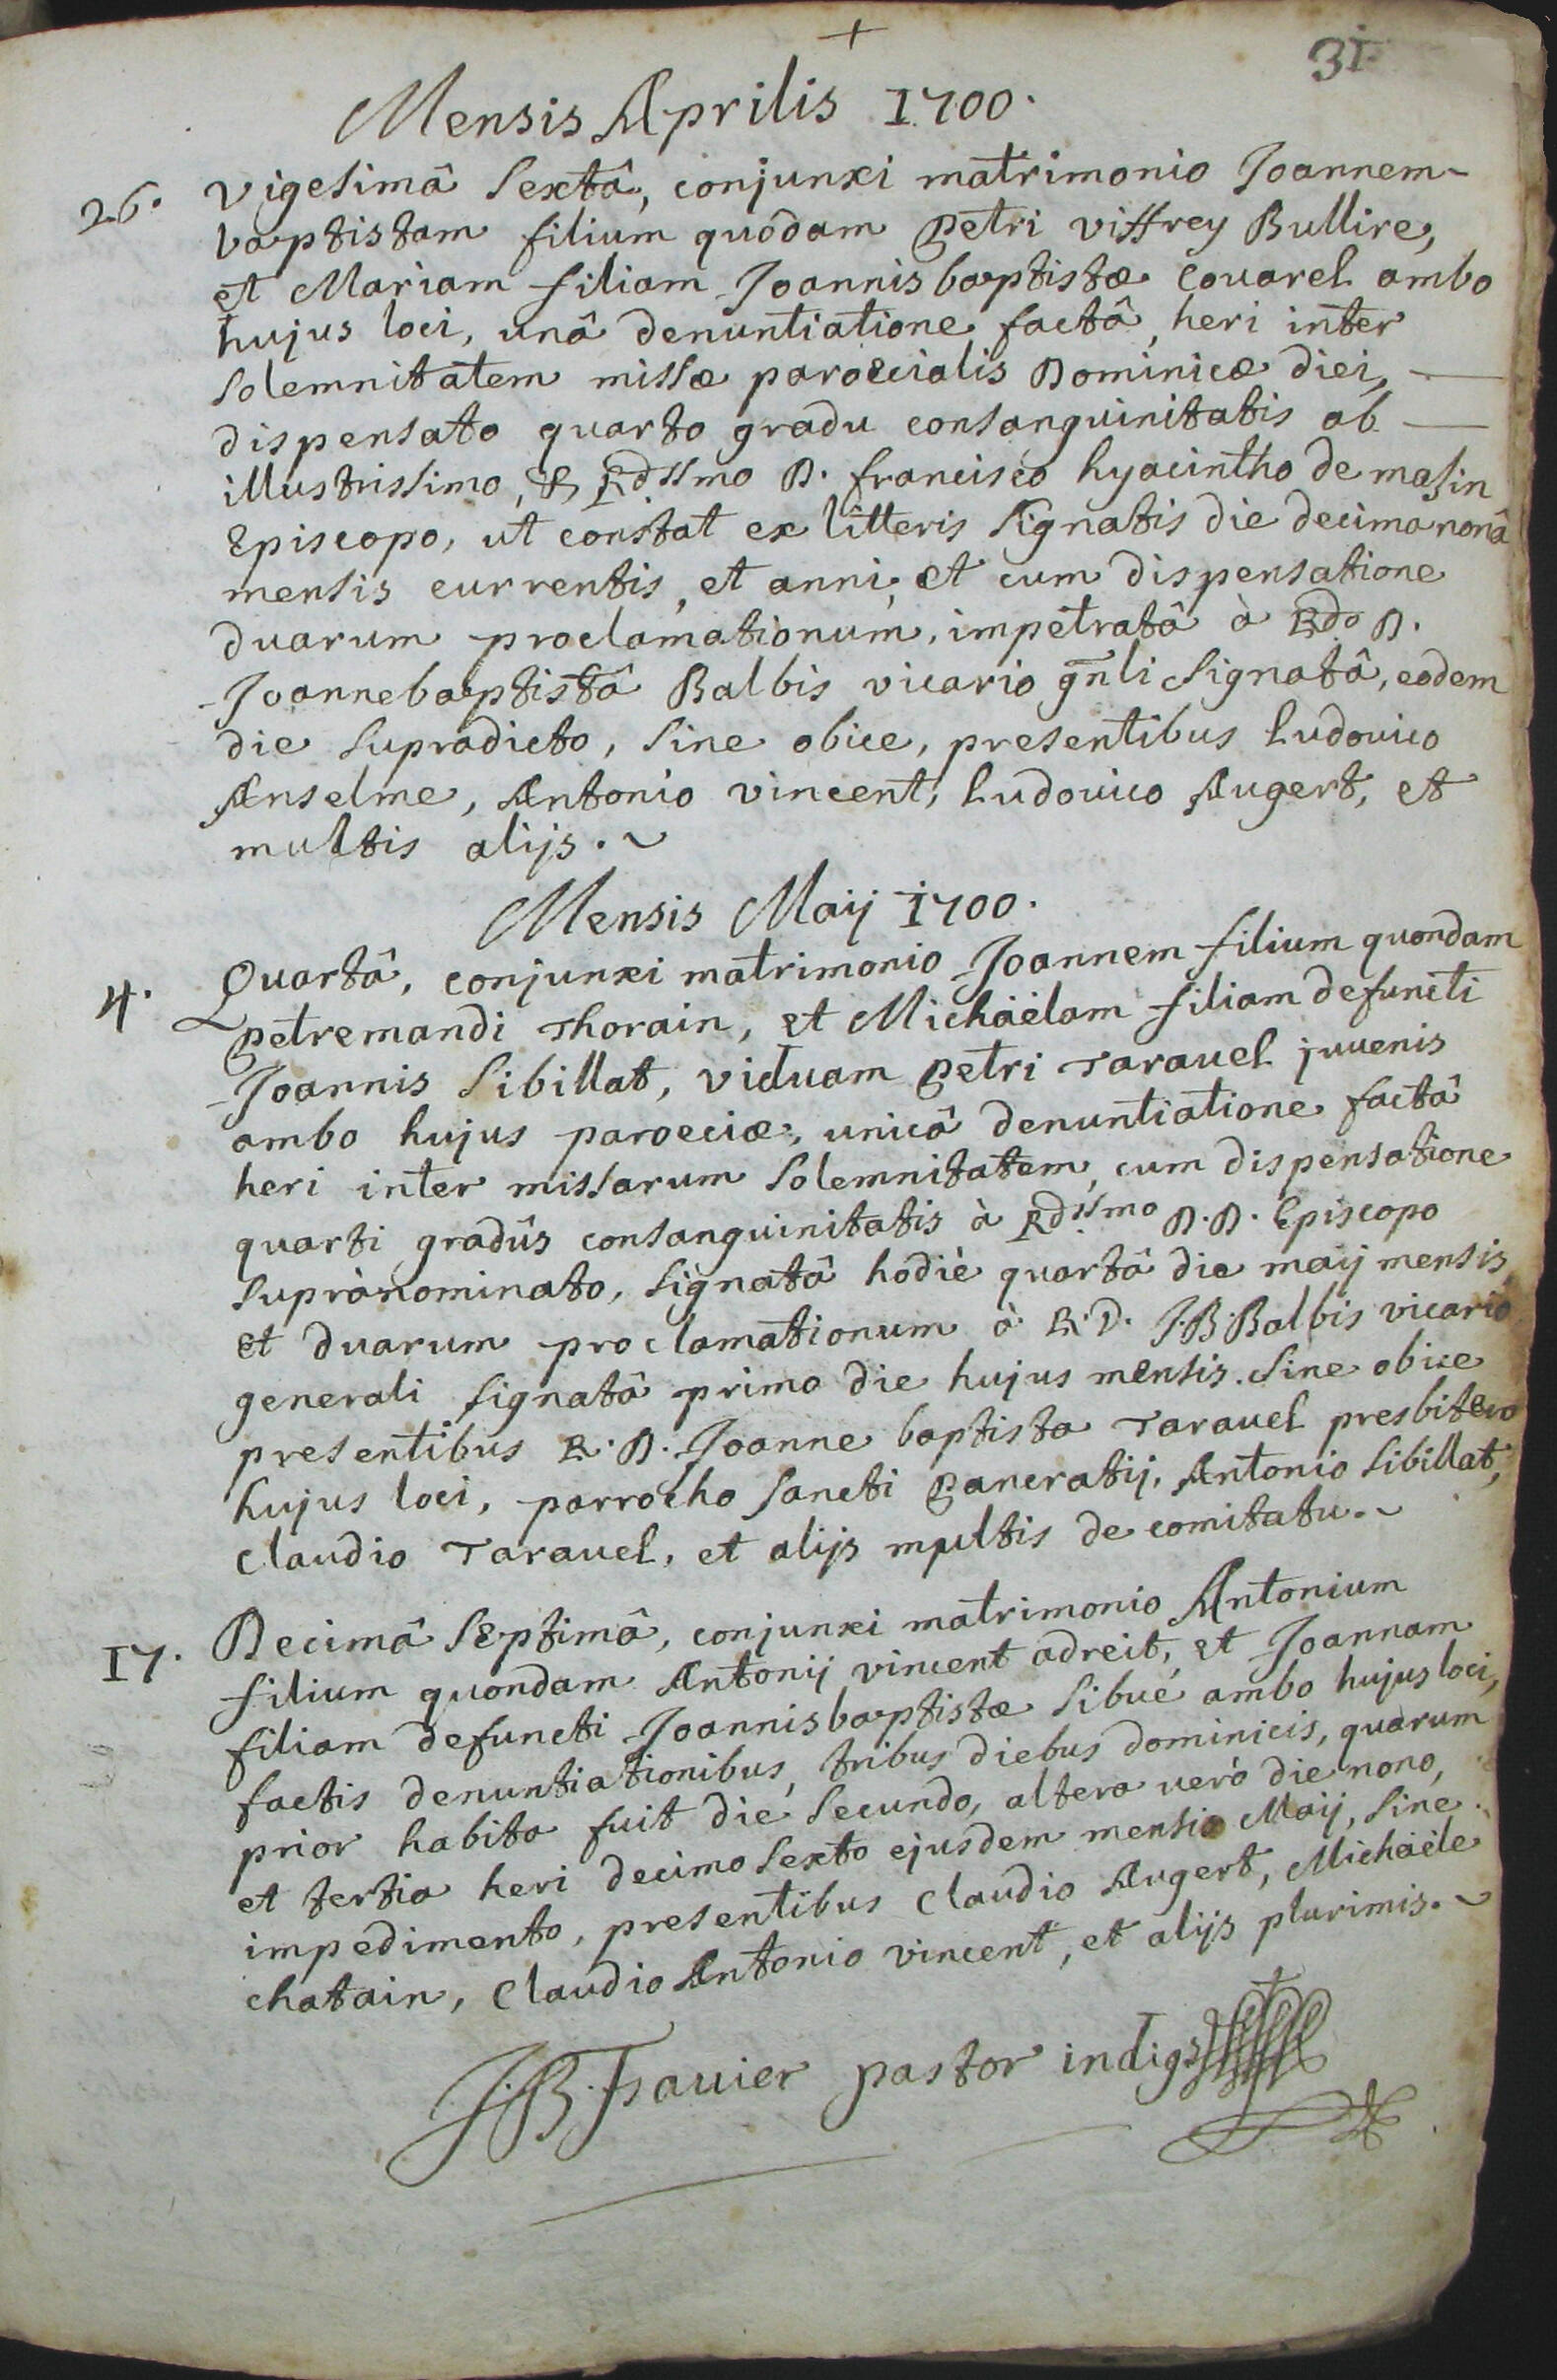 +
31
Mensis Aprilis 1700.
26. Vigesimâ sextâ, conjunxi matrimonio Joannem-
baptistam filium quôdam Petri viffrey Bullire,
et Mariam filiam Joannisbaptistæ Couarel ambo
hujus loci, unâ denuntiatione factâ, heri inter
solemnitatem missæ paroecialis Dominicæ diei, —
dispensato quarto gradu consanguinitatis ab —
illustrissimo, & Rdssmo D. francisco hyacintho de masin
Episcopo, ut constat ex litteris signatis die decimanonâ
mensis currentis, et anni, et cum dispensatione
duarum proclamationum, impetratâ à Rdo D.
Joannebaptistâ Balbis vicario gn̄li signatâ, eodem
die supradicto, sine obice, presentibus Ludouico
Anselme, Antonio vincent, Ludouico Augert, et
multis alijs. ~
Mensis Maij 1700.
4. Quartâ, conjunxi matrimonio Joannem filium quondam
petremandi Thorain, et Michaëlam filiam defuncti
Joannis Sibillat, viduam Petri Tarauel juuenis
ambo hujus paroeciæ, unicâ denuntiatione factâ
heri inter missarum solemnitatem, cum dispensatione
quarti gradûs consanguinitatis à Rdissmo D.D. Episcopo
suprànominato, signatâ hodiè quartâ die maij mensis,
et duarum proclamationum à R.D. J.B. Balbis vicario
generali signatâ primo die hujus mensis. Sine obice
presentibus R.D. Joanne baptista Tarauel presbitero
hujus loci, parrocho Sancti Pancratij, Antonio Sibillat,
Claudio Tarauel, et alijs multis de comitatu. ~
17. Decimâ septimâ, conjunxi matrimonio Antonium
filium quondam Antonij vincent adreit, et Joannam
filiam defuncti Joannisbaptistæ Sibué ambo hujus loci,
factis denuntiationibus, tribus diebus dominicis, quarum
prior habita fuit die secundo, altera uerò die nono,
et tertia heri decimo sexto ejusdem mensis Maij, sine
impedimento, presentibus Claudio Augert, Michaële
chatain, Claudio Antonio vincent, et alijs plurimis. ~
J.B. Frauier pastor indigs